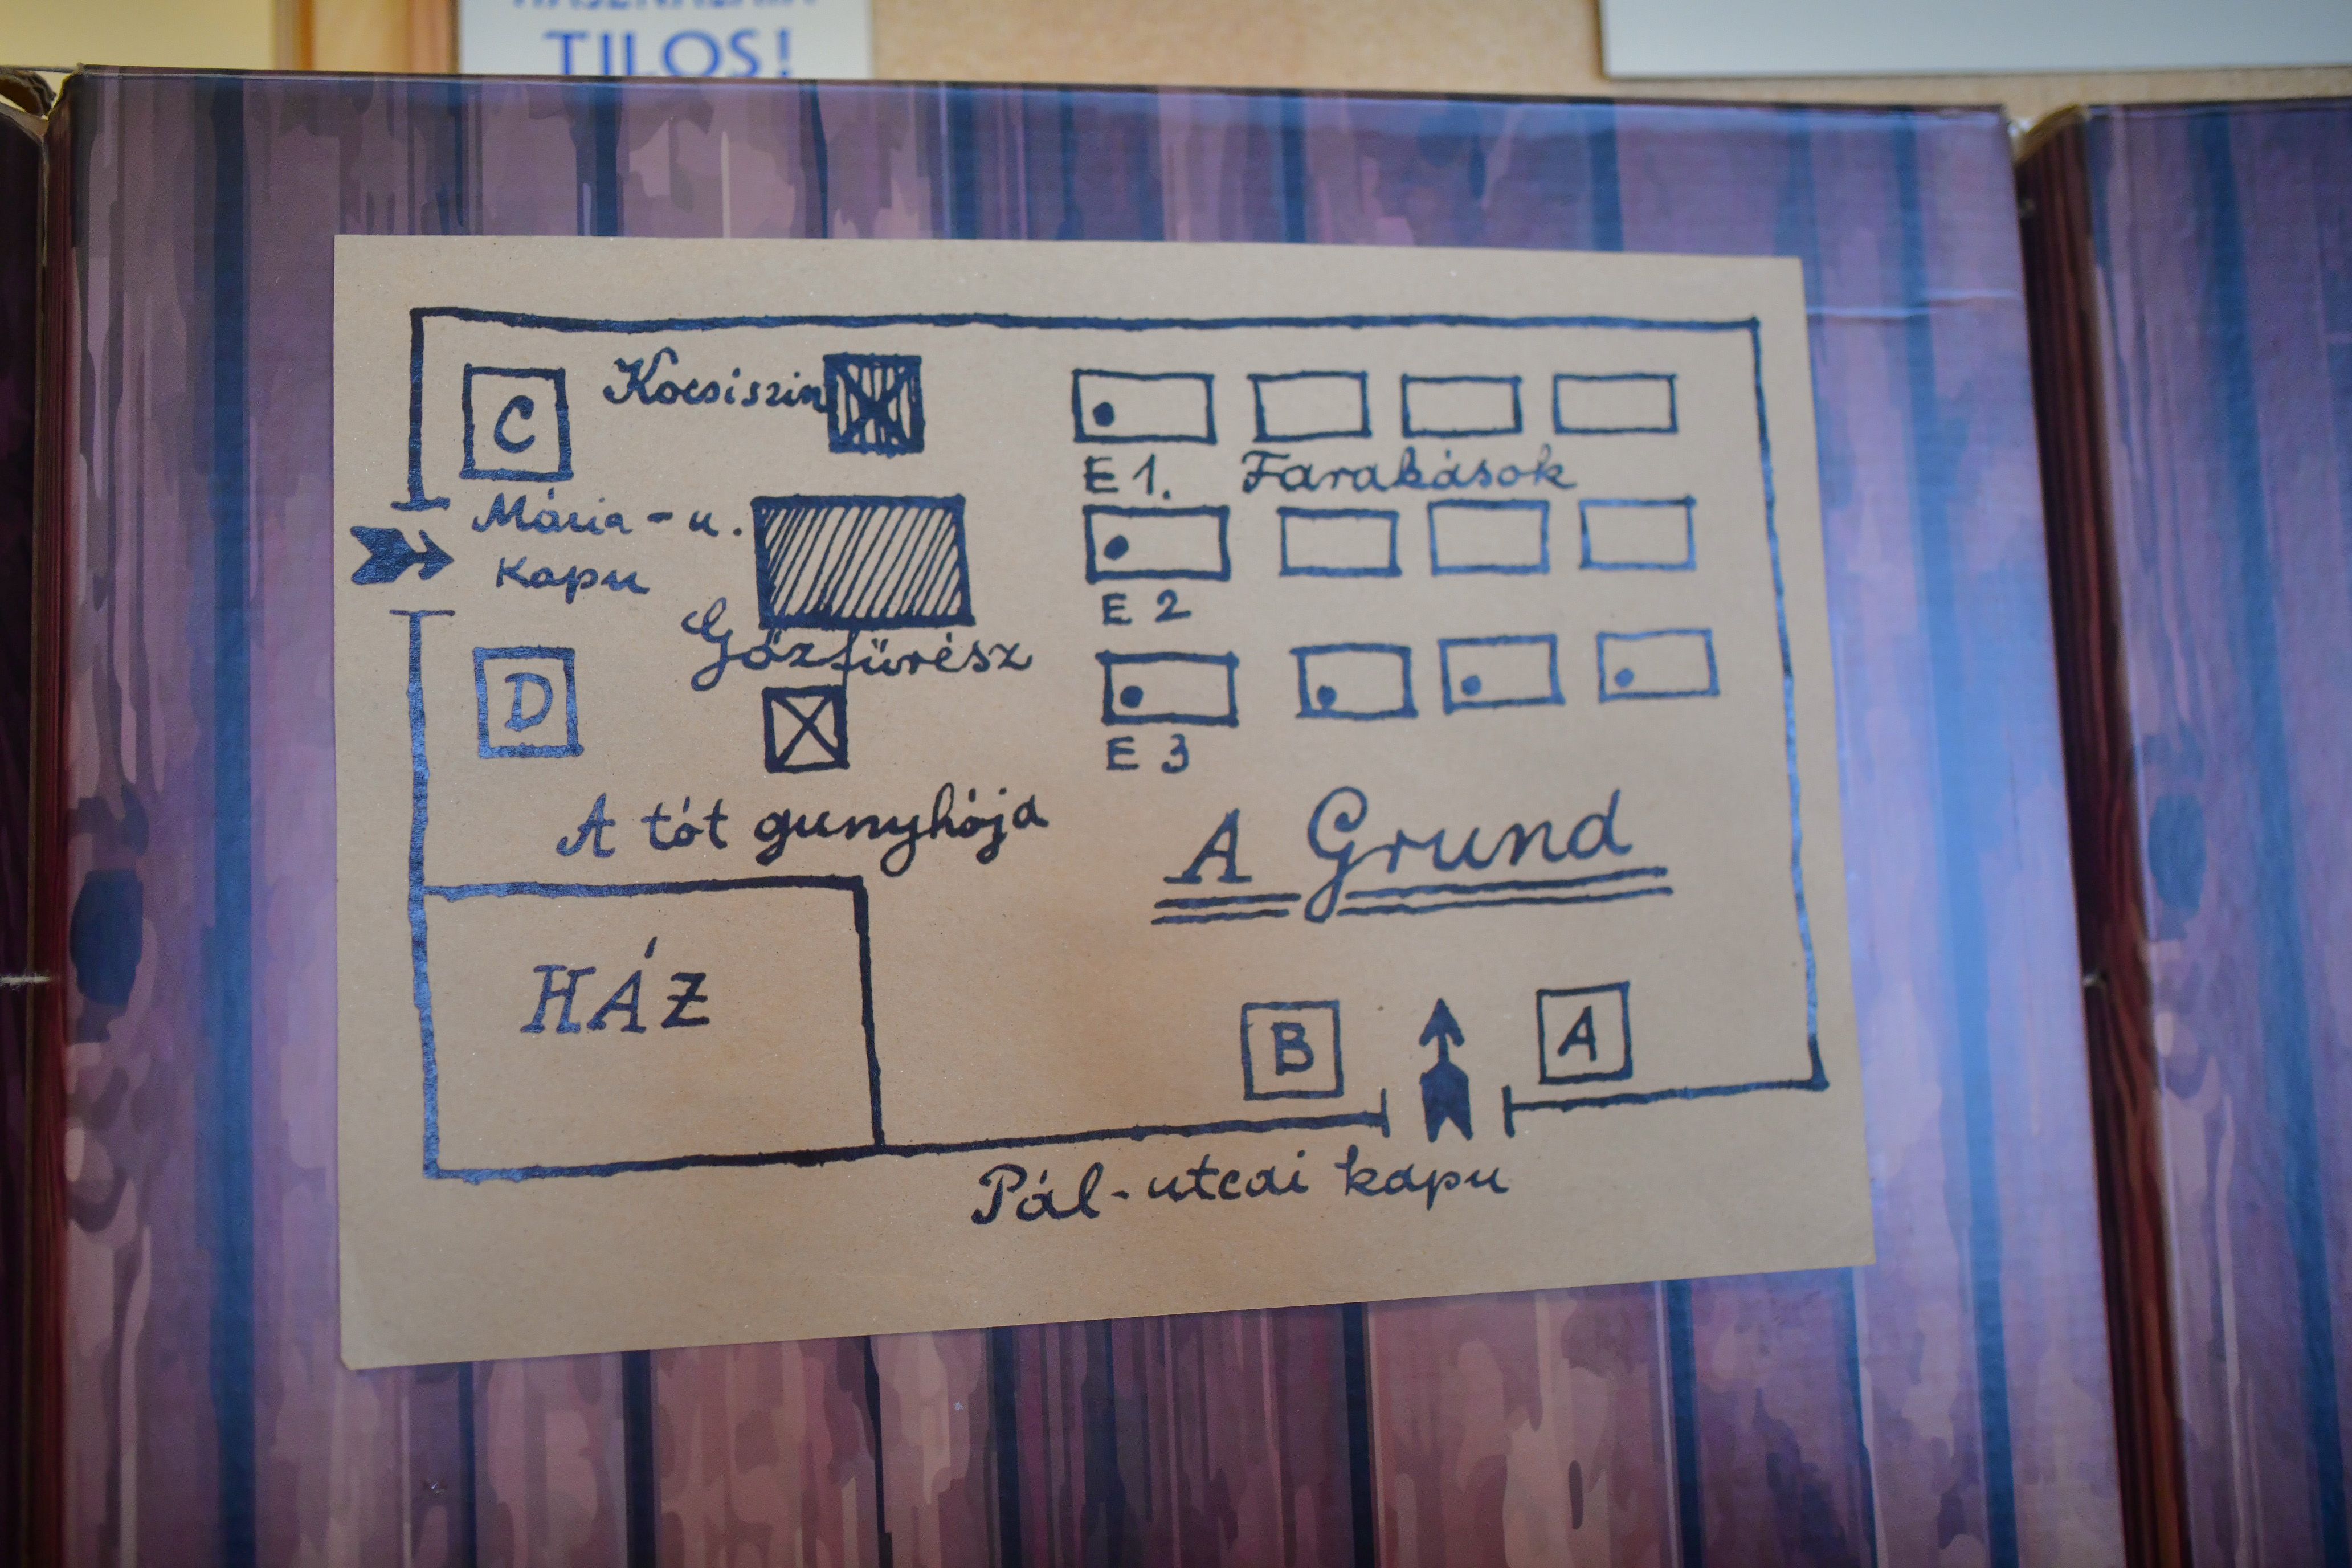 TILOS!
C
Kocsiszin
E 1. Farakások
Mária-u.
kapu
E 2
Gőzfűrész
D
E 3
A tót gunyhója
A Grund
HÁZ
B
A
Pál-utcai kapu